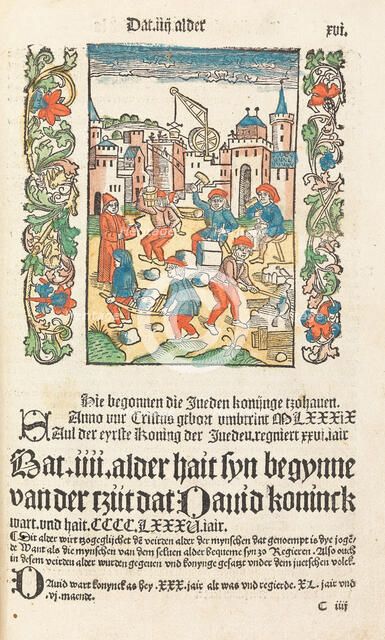 Dat .iiij alder
xvi.
Hie begonnen die Jueden konijnge tzohauen.
Anno vur Cristus gebort vmbtrint MLXXXIX
SAul der eyrste Koning der Jueden, regniert xxvi. iair
Dat .iiij. alder hait syn begynne
van der tzijt dat Dauid koninck
wart. vnd hait. CCCC. LXXXV. iair.
¶ Dit alder wirt tzogeglijchet de veirden alder der mynschen dat genoempt is dye joge⸗
de Want als die mynschen van dem seluen alder bequeme syn zo Regieren. Also ouch
in desem veirden alder wurden gegeuen vnd konynge gesatzt vnder dem juetschen volck.
DAuid wart konynck as hey .XXX. jair alt was vnd regierde. XL. jair vnd
.vj. maende.
C iiij